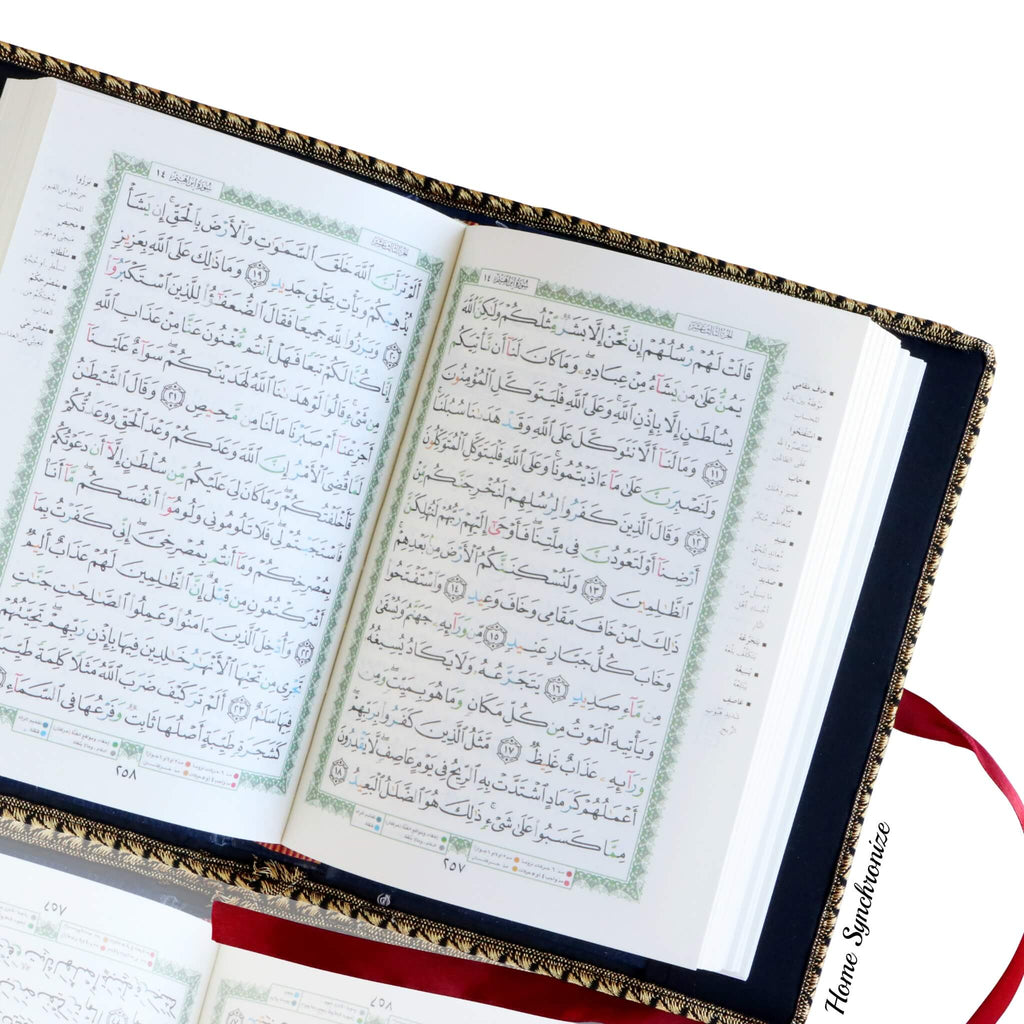 سُورَةُ إِبْرَاهِيم ١٤
قَالَتْ لَهُمْ رُسُلُهُمْ إِن نَّحْنُ إِلَّا بَشَرٌ مِّثْلُكُمْ وَلَٰكِنَّ ٱللَّهَ
يَمُنُّ عَلَىٰ مَن يَشَآءُ مِنْ عِبَادِهِۦ ۖ وَمَا كَانَ لَنَآ أَن نَّأْتِيَكُم
بِسُلْطَٰنٍ إِلَّا بِإِذْنِ ٱللَّهِ ۚ وَعَلَى ٱللَّهِ فَلْيَتَوَكَّلِ ٱلْمُؤْمِنُونَ
١١ وَمَا لَنَآ أَلَّا نَتَوَكَّلَ عَلَى ٱللَّهِ وَقَدْ هَدَىٰنَا سُبُلَنَا ۚ
وَلَنَصْبِرَنَّ عَلَىٰ مَآ ءَاذَيْتُمُونَا ۚ وَعَلَى ٱللَّهِ فَلْيَتَوَكَّلِ ٱلْمُتَوَكِّلُونَ
١٢ وَقَالَ ٱلَّذِينَ كَفَرُوا۟ لِرُسُلِهِمْ لَنُخْرِجَنَّكُم مِّنْ
أَرْضِنَآ أَوْ لَتَعُودُنَّ فِى مِلَّتِنَا ۖ فَأَوْحَىٰٓ إِلَيْهِمْ رَبُّهُمْ لَنُهْلِكَنَّ
ٱلظَّٰلِمِينَ ١٣ وَلَنُسْكِنَنَّكُمُ ٱلْأَرْضَ مِنۢ بَعْدِهِمْ ۚ
ذَٰلِكَ لِمَنْ خَافَ مَقَامِى وَخَافَ وَعِيدِ ١٤ وَٱسْتَفْتَحُوا۟
وَخَابَ كُلُّ جَبَّارٍ عَنِيدٍ ١٥ مِّن وَرَآئِهِۦ جَهَنَّمُ وَيُسْقَىٰ
مِن مَّآءٍ صَدِيدٍ ١٦ يَتَجَرَّعُهُۥ وَلَا يَكَادُ يُسِيغُهُۥ
وَيَأْتِيهِ ٱلْمَوْتُ مِن كُلِّ مَكَانٍ وَمَا هُوَ بِمَيِّتٍ ۖ وَمِن
وَرَآئِهِۦ عَذَابٌ غَلِيظٌ ١٧ مَّثَلُ ٱلَّذِينَ كَفَرُوا۟ بِرَبِّهِمْ ۖ
أَعْمَٰلُهُمْ كَرَمَادٍ ٱشْتَدَّتْ بِهِ ٱلرِّيحُ فِى يَوْمٍ عَاصِفٍ ۖ لَّا يَقْدِرُونَ
مِمَّا كَسَبُوا۟ عَلَىٰ شَىْءٍ ۚ ذَٰلِكَ هُوَ ٱلضَّلَٰلُ ٱلْبَعِيدُ ١٨
٢٥٧
سُورَةُ إِبْرَاهِيم ١٤
أَلَمْ تَرَ أَنَّ ٱللَّهَ خَلَقَ ٱلسَّمَٰوَٰتِ وَٱلْأَرْضَ بِٱلْحَقِّ ۚ إِن يَشَأْ
يُذْهِبْكُمْ وَيَأْتِ بِخَلْقٍ جَدِيدٍ ١٩ وَمَا ذَٰلِكَ عَلَى ٱللَّهِ بِعَزِيزٍ
٢٠ وَبَرَزُوا۟ لِلَّهِ جَمِيعًا فَقَالَ ٱلضُّعَفَٰٓؤُا۟ لِلَّذِينَ ٱسْتَكْبَرُوٓا۟
إِنَّا كُنَّا لَكُمْ تَبَعًا فَهَلْ أَنتُم مُّغْنُونَ عَنَّا مِنْ عَذَابِ ٱللَّهِ
مِن شَىْءٍ ۚ قَالُوا۟ لَوْ هَدَىٰنَا ٱللَّهُ لَهَدَيْنَٰكُمْ ۖ سَوَآءٌ عَلَيْنَآ
أَجَزِعْنَآ أَمْ صَبَرْنَا مَا لَنَا مِن مَّحِيصٍ ٢١ وَقَالَ ٱلشَّيْطَٰنُ
لَمَّا قُضِىَ ٱلْأَمْرُ إِنَّ ٱللَّهَ وَعَدَكُمْ وَعْدَ ٱلْحَقِّ وَوَعَدتُّكُمْ
فَأَخْلَفْتُكُمْ ۖ وَمَا كَانَ لِىَ عَلَيْكُم مِّن سُلْطَٰنٍ إِلَّآ أَن دَعَوْتُكُمْ
فَٱسْتَجَبْتُمْ لِى ۖ فَلَا تَلُومُونِى وَلُومُوٓا۟ أَنفُسَكُم ۖ مَّآ أَنَا۠
بِمُصْرِخِكُمْ وَمَآ أَنتُم بِمُصْرِخِىَّ ۖ إِنِّى كَفَرْتُ بِمَآ
أَشْرَكْتُمُونِ مِن قَبْلُ ۗ إِنَّ ٱلظَّٰلِمِينَ لَهُمْ عَذَابٌ أَلِيمٌ
٢٢ وَأُدْخِلَ ٱلَّذِينَ ءَامَنُوا۟ وَعَمِلُوا۟ ٱلصَّٰلِحَٰتِ جَنَّٰتٍ
تَجْرِى مِن تَحْتِهَا ٱلْأَنْهَٰرُ خَٰلِدِينَ فِيهَا بِإِذْنِ رَبِّهِمْ ۖ تَحِيَّتُهُمْ
فِيهَا سَلَٰمٌ ٢٣ أَلَمْ تَرَ كَيْفَ ضَرَبَ ٱللَّهُ مَثَلًا كَلِمَةً طَيِّبَةً
كَشَجَرَةٍ طَيِّبَةٍ أَصْلُهَا ثَابِتٌ وَفَرْعُهَا فِى ٱلسَّمَآءِ
٢٥٨
Home Synchronize